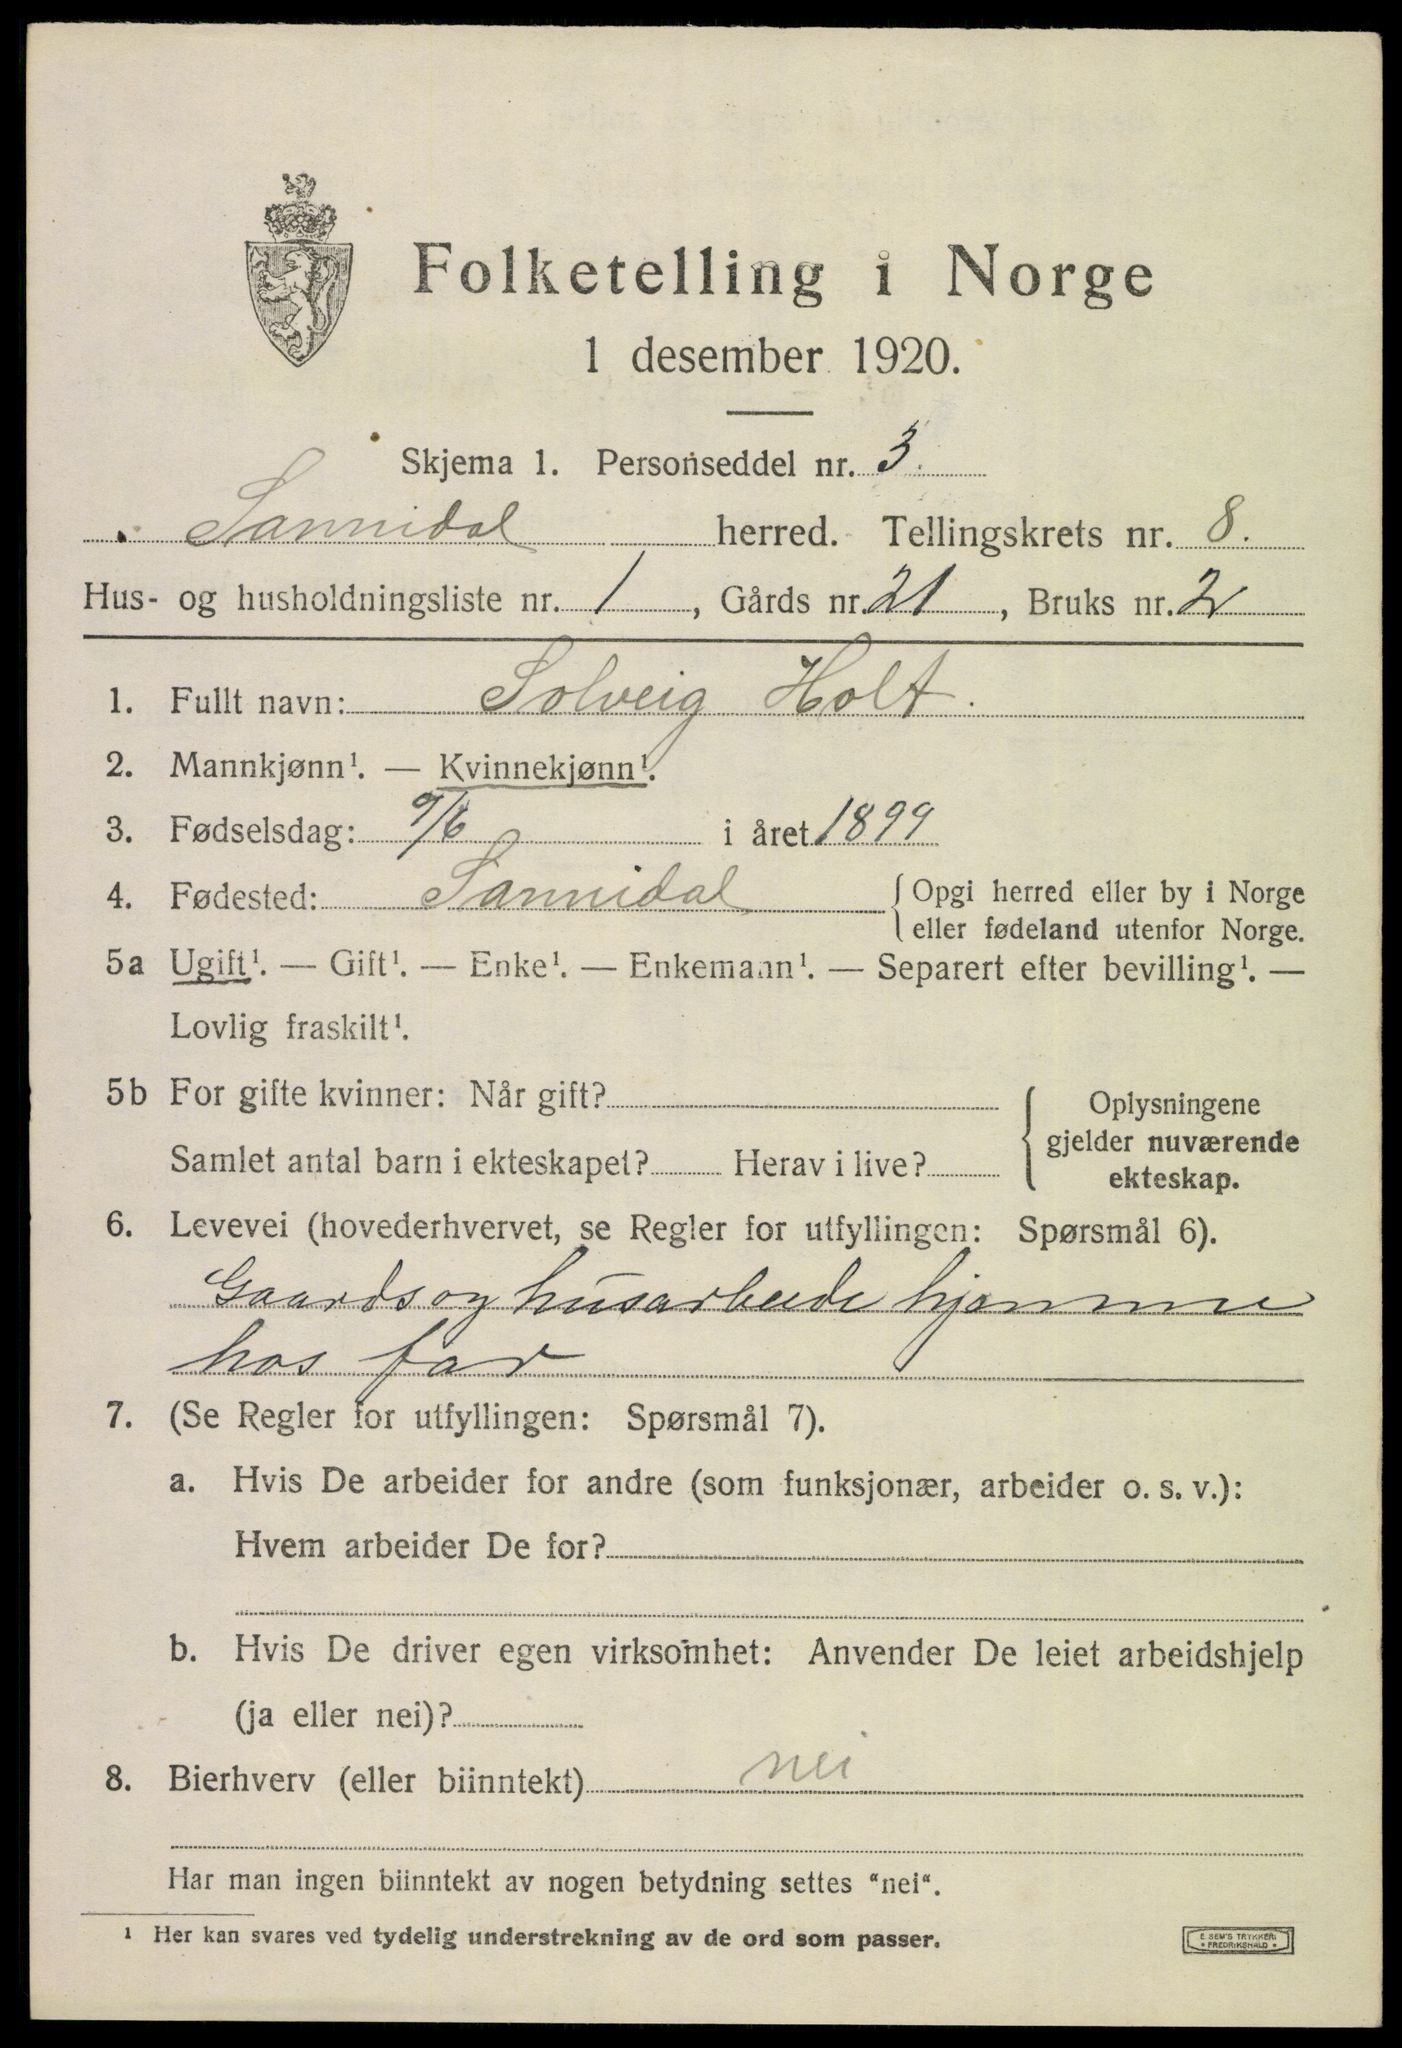 Folketelling i Norge
1 desember 1920.
Skjema 1. Personseddel nr. 3.
Sannidal herred. Tellingskrets nr. 8.
Hus- og husholdningsliste nr. 1, Gårds nr. 21, Bruks nr. 2
1. Fullt navn: Solveig Holt.
2. Mannkjønn¹. — Kvinnekjønn¹.
3. Fødselsdag: 9/6 i året 1899
4. Fødested: Sannidal { Opgi herred eller by i Norge
eller fødeland utenfor Norge.
5a Ugift¹. — Gift¹. — Enke¹. — Enkemann¹. — Separert efter bevilling¹. —
Lovlig fraskilt¹.
5b For gifte kvinner: Når gift?
Samlet antal barn i ekteskapet? Herav i live?
{ Oplysningene
gjelder nuværende
ekteskap.
6. Levevei (hovederhvervet, se Regler for utfyllingen: Spørsmål 6).
Gaards og husarbeide hjemme
hos far
7. (Se Regler for utfyllingen: Spørsmål 7).
a. Hvis De arbeider for andre (som funksjonær, arbeider o. s. v.):
Hvem arbeider De for?
b. Hvis De driver egen virksomhet: Anvender De leiet arbeidshjelp
(ja eller nei)?
8. Bierhverv (eller biinntekt) nei
Har man ingen biinntekt av nogen betydning settes "nei".
¹ Her kan svares ved tydelig understrekning av de ord som passer.
E. SEM'S TRYKKERI
• FREDRIKSHALD •